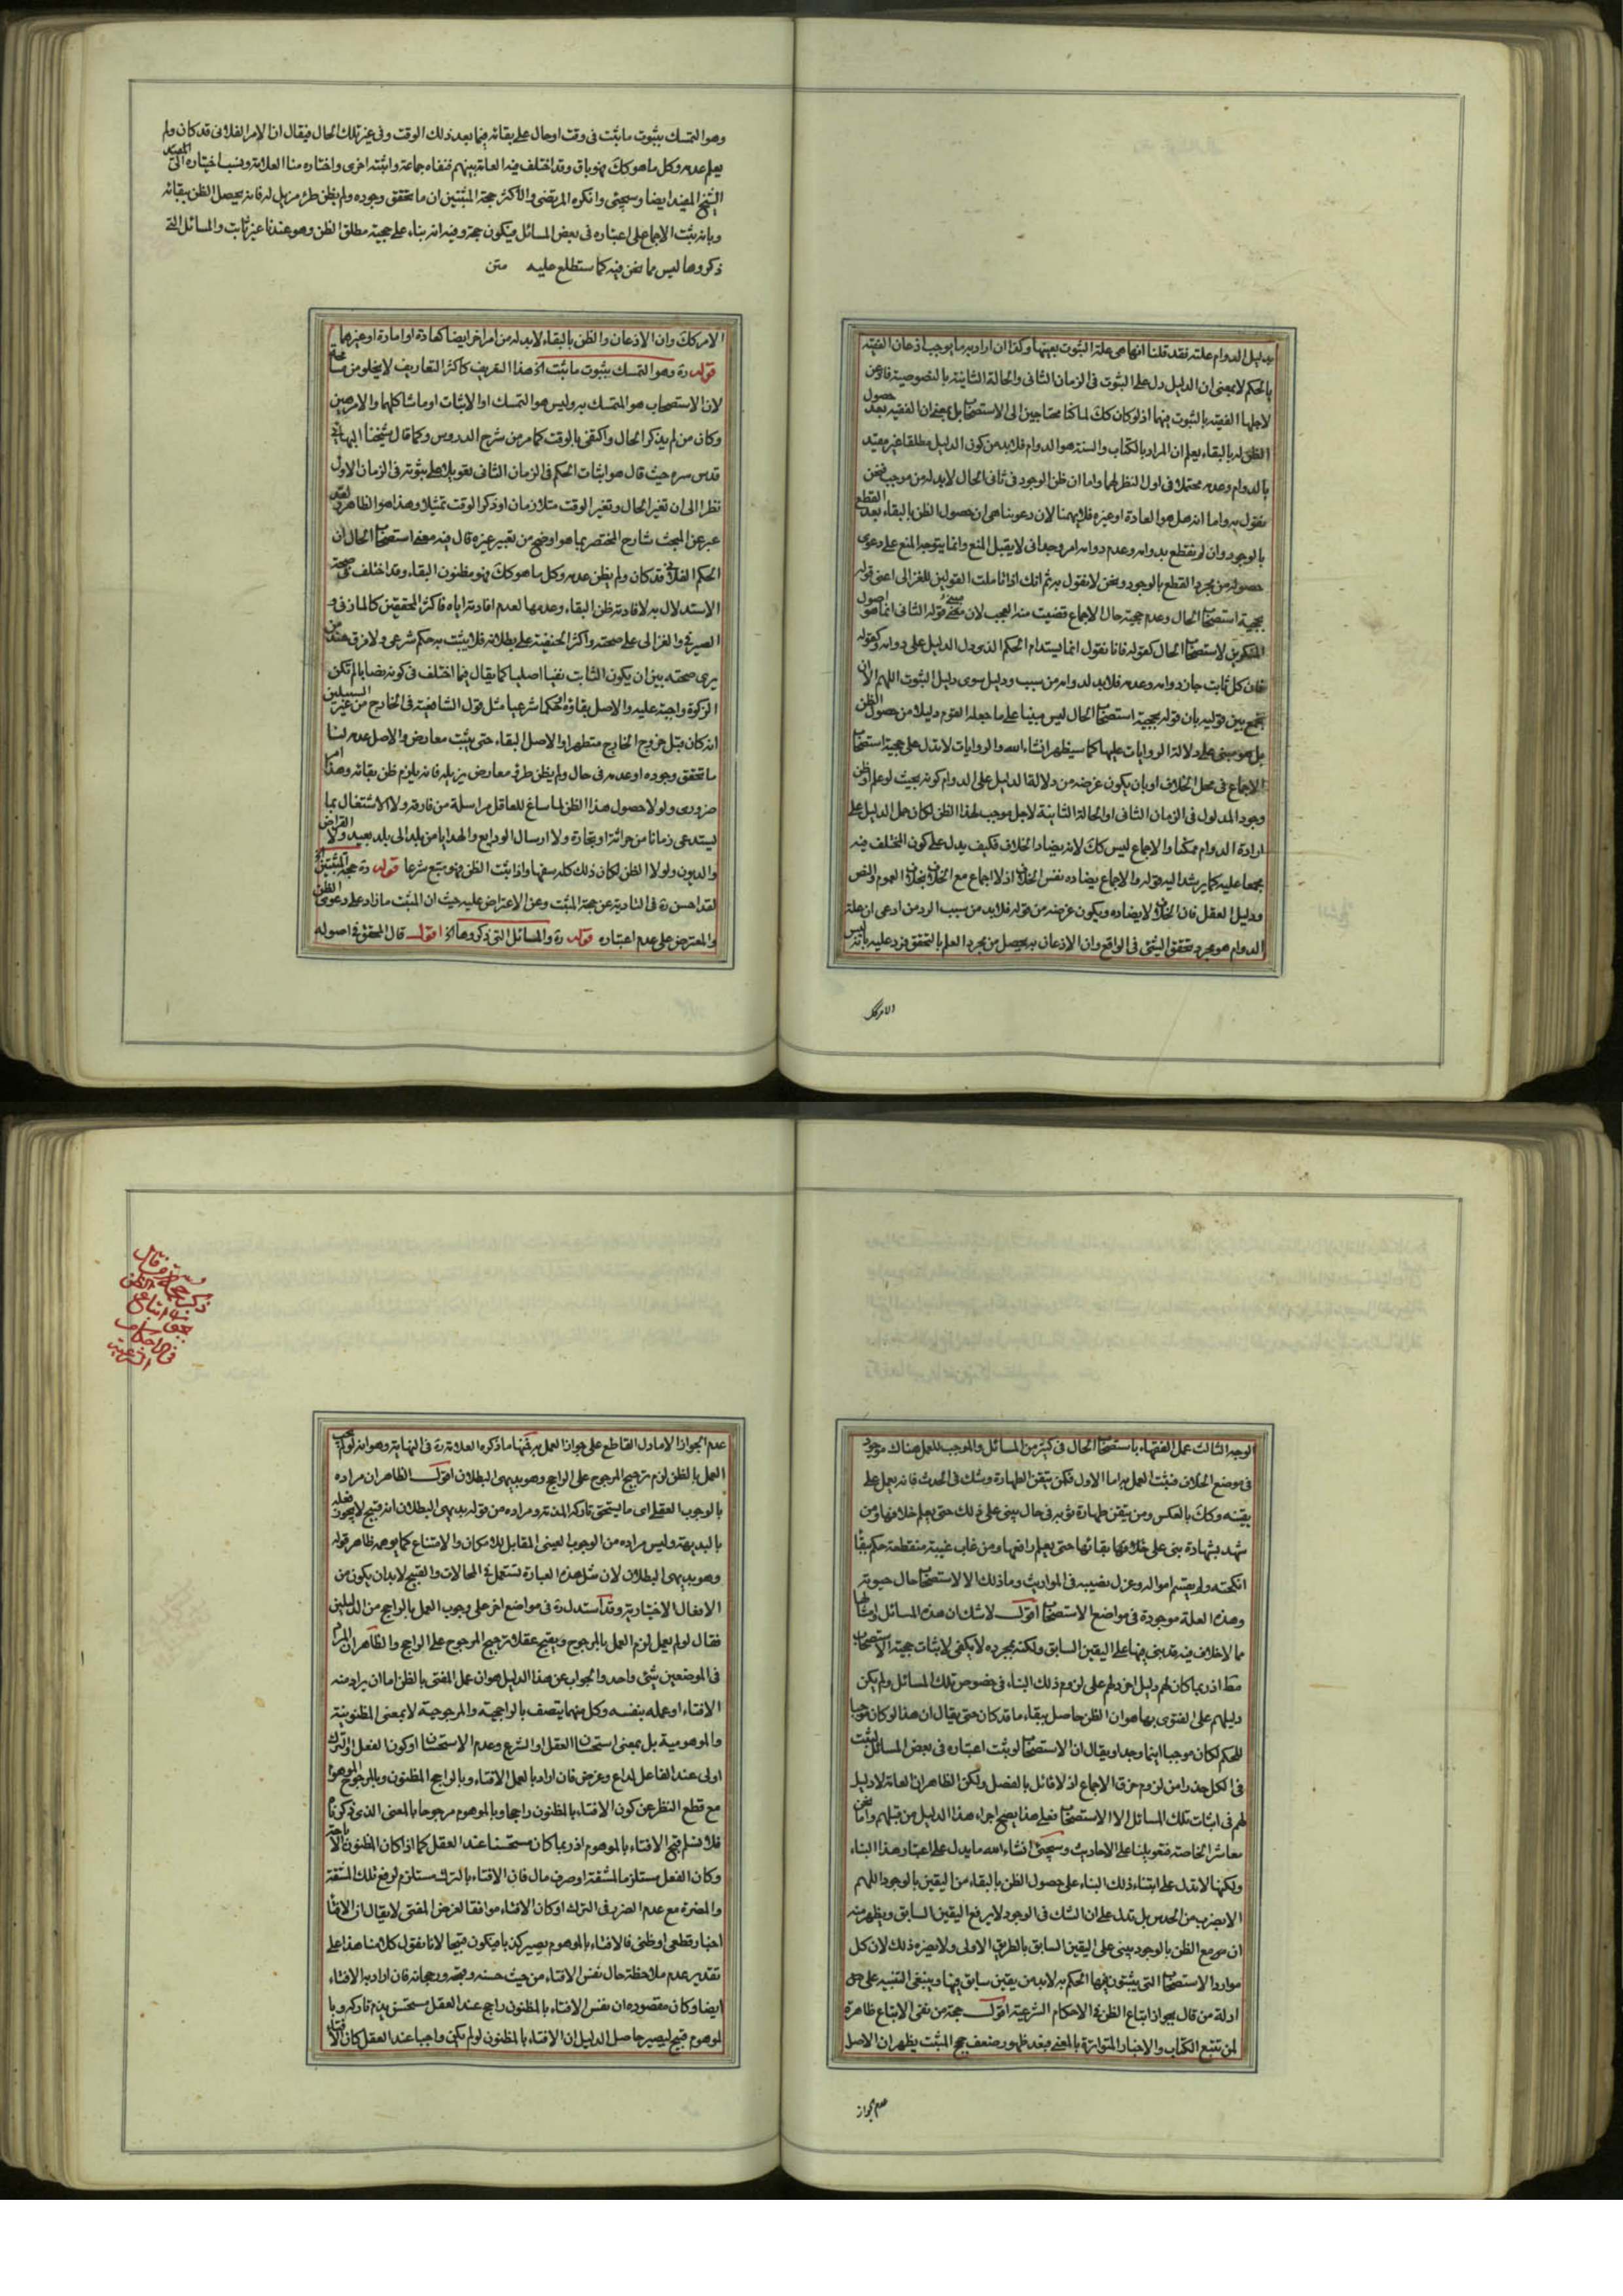 بدليل الدوام علته فقد قلنا انها هى علة الثبوت بعينها وكذا ان اراد به ما يوجب اذعان الفقيه
بالحكم لا بمعنى ان الدليل دل على الثبوت فى الزمان الثانى والحالة الثانية بالخصوصية
لاجلها الفقيه بالثبوت فيهما اذ لو كان كك لما كنا محتاجين الى الاستصحاب بل بمعنى ان الفقيه بعد حصول
الظن له بالبقاء يعلم ان المراد بالكتاب والسنة هو الدوام فلا بد من كون الدليل مطلقا غير مقيد
بالدوام وعدمه محتملا فى اول النظر لهما واما ان ظن الوجود فى ثانى الحال لابد له من موجب فنحن
نقول به واما انه هل هو العادة او غيره فلا يهمنا الان دعوبنا هى ان حصول الظن بالبقاء بعد القطع
بالوجود وان لم نقطع بدوامه وعدم دوامه امر وجدانى لا يقبل المنع وانما يتوجه المنع على دعوى
حصوله من مجرد القطع بالوجود ونحن لا نقول به ثم انك اذا تاملت القولين للغزالى اعنى قوله
بحجية استصحاب الحال وعدم حجية حال الاجماع قضيت منه العجب لان مبنى قوله الثانى انما هو اصول
المنكرين لاستصحاب الحال كقوله فانا نقول انما يستدام الحكم الذى دل الدليل على دوامه وكقوله
فان كل ثابت جاز دوامه وعدمه فلا بد لدوامه من سبب ودليل سوى دليل الثبوت اللهم الا ان
يجمع بين قوليه بان قوله بحجية استصحاب الحال ليس مبنيا على ما جعله القوم دليلا من حصول الظن
بل هو مبنى على دلالة الروايات عليها كما سيظهر انشاء الله والروايات لا تدل على حجية استصحاب
الاجماع فى محل الخلاف او بان يكون غرضه من دلالة الدليل على الدوام كونه بحيث لو علم او ظن
وجود المدلول فى الزمان الثانى او الحالة الثانية لاجل موجب لهذا الظن لكان حمل الدليل على
ارادة الدوام ممكنا والاجماع ليس كك لانه يضاد الخلاف فكيف يدل على كون المختلف فيه
مجمعا عليه كما يرشد اليه قوله والاجماع يضاده نفس الخلاف اذ لا اجماع مع الخلاف بخلاف العموم والنص
ودليل العقل فان الخلاف لا يضاده ويكون غرضه من قوله فلا بد من سبب الرد من ادعى ان علة
الدوام هو مجرد تحقق الشئ فى الواقع وان الاذعان به يحصل من مجرد العلم بالتحقق فرد عليه بانه ليس
الامر كك
وهو التمسك بثبوت ما ثبت فى وقت او حال على بقائه فيما بعد ذلك الوقت وفى غير تلك الحال فيقال ان الامر الفلانى قد كان ولم
يعلم عدمه وكل ما هو كك فهو باق وقد اختلف فيه العامة بينهم فنفاه جماعة واثبته اخرى واختاره منا العلامة ونسب اختياره الى
الشيخ المفيد ايضا وسيجئ وانكره المرتضى والاكثر حجة المثبتين ان ما تحقق وجوده ولم يظن طرو مزيل له فانه يحصل الظن ببقائه
وبانه ثبت الاجماع على اعتباره فى بعض المسائل فيكون حجة وفيه انه بناء على حجية مطلق الظن وهو عندنا غير ثابت والمسائل التى
ذكروها ليس مما نحن فيه كما ستطلع عليه متن
الامر كك وان الاذعان والظن بالبقاء لابد له من امر اخر ايضا كعادة او امارة او غيرهما
قوله ره وهو التمسك بثبوت ما ثبت اخ هذا التعريف كاكثر التعاريف لا يخلو من مسامحة
لان الاستصحاب هو المتمسك به وليس هو التمسك او الاثبات او ما شاكلهما والامر هين
وكان من لم يذكر الحال واكتفى بالوقت كما مر من شرح الدروس وكما قال شيخنا البهائى
قدس سره حيث قال هو اثبات الحكم فى الزمان الثانى تعويلا على ثبوته فى الزمان الاول
نظرا الى ان تغير الحال وتغير الوقت متلازمان او ذكر الوقت تمثيلا وهذا هو الظاهر
عبر عن المبحث شارح المختصر بما هو اوضح من تعبير غيره قال فيه معنى استصحاب الحال ان
الحكم الفلانى قد كان ولم يظن عدمه وكل ما هو كك فهو مظنون البقاء وقد اختلف فى صحة
الاستدلال به لافادته ظن البقاء وعدمها لعدم افادته اياه فاكثر المحققين كالمازنى و
الصيرفى والغزالى على صحته واكثر الحنفية على بطلانه فلا يثبت به حكم شرعى ولا فرق عند من
يرى صحته بين ان يكون الثابت نفيا اصليا كما يقال فيما اختلف فى كونه نصابا لم تكن
الزكوة واجبة عليه والاصل بقاؤه او حكما شرعيا مثل قول الشافعية فى الخارج من غير السبيلين
انه كان قبل خروج الخارج متطهرا والاصل البقاء حتى يثبت معارض والاصل عدمه لنا
ما تحقق وجوده او عدمه فى حال ولم يظن طرو معارض يزيله فانه يلزم ظن بقائه وهذا امر
ضرورى ولولا حصول هذا الظن لما ساغ للعاقل مراسلة من فارقه ولا الاشتغال بما
يستدعى زمانا من حراثة او تجارة ولا ارسال الودايع والهدايا من بلد الى بلد بعيد ولا القراض
والديون ولولا الظن لكان ذلك كله سفها واذا ثبت الظن فهو متبع شرعا قوله ره حجة المثبتين اخ
لقد احسن ره فى التادية عن حجة المثبت وعن الاعتراض عليه حيث ان المثبت ما زاد على دعوى الظن
والمعترض على عدم اعتباره قوله ره والمسائل التى ذكروها اخ اقول قال المحقق فى اصوله
الوجه الثالث عمل الفقهاء باستصحاب الحال فى كثير من المسائل والموجب للعمل هناك موجود
فى موضع الخلاف فيثبت العمل به اما الاول فكمن تيقن الطهارة وشك فى الحدث فانه يعمل على
يقينه وكك بالعكس ومن تيقن طهارة ثوبه فى حال يبنى على ذلك حتى يعلم خلافها ومن
شهد بشهادة بنى على بقائها حتى يعلم رافعها ومن غاب غيبة منقطعة حكم ببقاء
انكحته ولم يقسم امواله وعزل نصيبه فى المواريث وما ذلك الا لاستصحاب حال حيوته
وهذه العلة موجودة فى مواضع الاستصحاب اقول لا شك ان هذه المسائل وامثالها
مما لا خلاف فيه قد بنى فيها على اليقين السابق ولكنه بمجرده لا يكفى لاثبات حجية الاستصحاب
مط اذ ربما كان لهم دليل اخر دلهم على لزوم ذلك البناء فى خصوص تلك المسائل ولم يكن
دليلهم على الفتوى بها هو ان الظن حاصل ببقاء ما قد كان حتى يقال ان هذا لو كان موجبا
للحكم لكان موجبا اينما وجد او يقال ان الاستصحاب لو ثبت اعتباره فى بعض المسائل لثبت
فى الكل حذرا من لزوم خرق الاجماع اذ لا قائل بالفصل ولكن الظاهر ان العامة لا دليل
لهم فى اثبات تلك المسائل الا الاستصحاب فعلى هذا يصح اجراء هذا الدليل من قبلهم واما نحن
معاشر الخاصة فتعويلنا على الاحاديث وسيجئ انشاء الله ما يدل على اعتبار هذا البناء
ولكنها لا تدل على ابتناء ذلك البناء على حصول الظن بالبقاء من اليقين بالوجود اللهم
الا بضرب من الحدس بل تدل على ان الشك فى الوجود لا يرفع اليقين السابق ويظهر منه
ان مع الظن بالوجود يبنى على اليقين السابق بالطريق الاولى ولا يضره ذلك لان كل
موارد الاستصحاب التى يثبتون فيها الحكم به لابد من يقين سابق فيها وينبغى التنبيه على حل
ادلة من قال بجواز اتباع الظن فى الاحكام الشرعية اقول حجة من نفى الاتباع ظاهرة
لمن تتبع الكتاب والاخبار المتواترة بالمعنى فبعد ظهور ضعف حجج المثبت يظهر ان الاصل
عدم الجواز
عدم الجواز الا ما دل القاطع على جواز العمل به فمنها ما ذكره العلامة ره فى النهاية وهو انه لو لم يجب
العمل بالظن لزم ترجيح المرجوح على الراجح وهو بديهى البطلان اقول الظاهر ان مراده
بالوجوب العقلى اى ما يستحق تاركه المذمة ومراده من قوله بديهى البطلان انه قبيح لا يجوز فعله
بالبديهة وليس مراده من الوجوب المعنى المقابل للامكان والامتناع كما يوهمه ظاهر قوله
وهو بديهى البطلان لان مثل هذه العبارة تستعمل فى المحالات والقبيح لابد ان يكون من
الافعال الاختيارية وقد استدل ره فى مواضع اخر على وجوب العمل بالراجح من الدليلين
فقال لو لم يعمل لزم العمل بالمرجوح ويقبح عقلا ترجيح المرجوح على الراجح والظاهر ان المراد
فى الموضعين شئ واحد والجواب عن هذا الدليل هو ان عمل المفتى بالظن اما ان يراد منه
الافتاء او عمله بنفسه وكل منهما يتصف بالراجحية والمرجوحية لا بمعنى المظنونية
والموهومية بل بمعنى استحسان العقل او الشرع وعدم الاستحسان او كون الفعل او الترك
اولى عند الفاعل لداع وغرض فان اراد بالعمل الافتاء وبالراجح المظنون وبالمرجوح الموهوم
مع قطع النظر عن كون الافتاء بالمظنون راجحا وبالموهوم مرجوحا بالمعنى الذى ذكرنا
فلا نسلم قبح الافتاء بالموهوم اذ ربما كان مستحسنا عند العقل كما اذا كان المظنون الاباحة
وكان الفعل مستلزما لمشقة او صرف مال فان الافتاء بالترك مستلزم لرفع تلك المشقة
والمضرة مع عدم الضرر فى الترك او كان الافتاء موافقا لغرض المفتى لا يقال ان الافتاء
اخبار قطعى او ظنى فالافتاء بالموهوم يصير كذبا فيكون قبيحا لانا نقول كلامنا هذا على
تقدير عدم ملاحظة حال نفس الافتاء من حيث حسنه وقبحه ورجحانه فان اراد به الافتاء
ايضا وكان مقصوده ان نفس الافتاء بالمظنون راجح عند العقل مستحسن يذم تاركه وبا
لموهوم قبيح ليصير حاصل الدليل ان الافتاء بالمظنون لو لم يكن واجبا عند العقل كان الافتاء